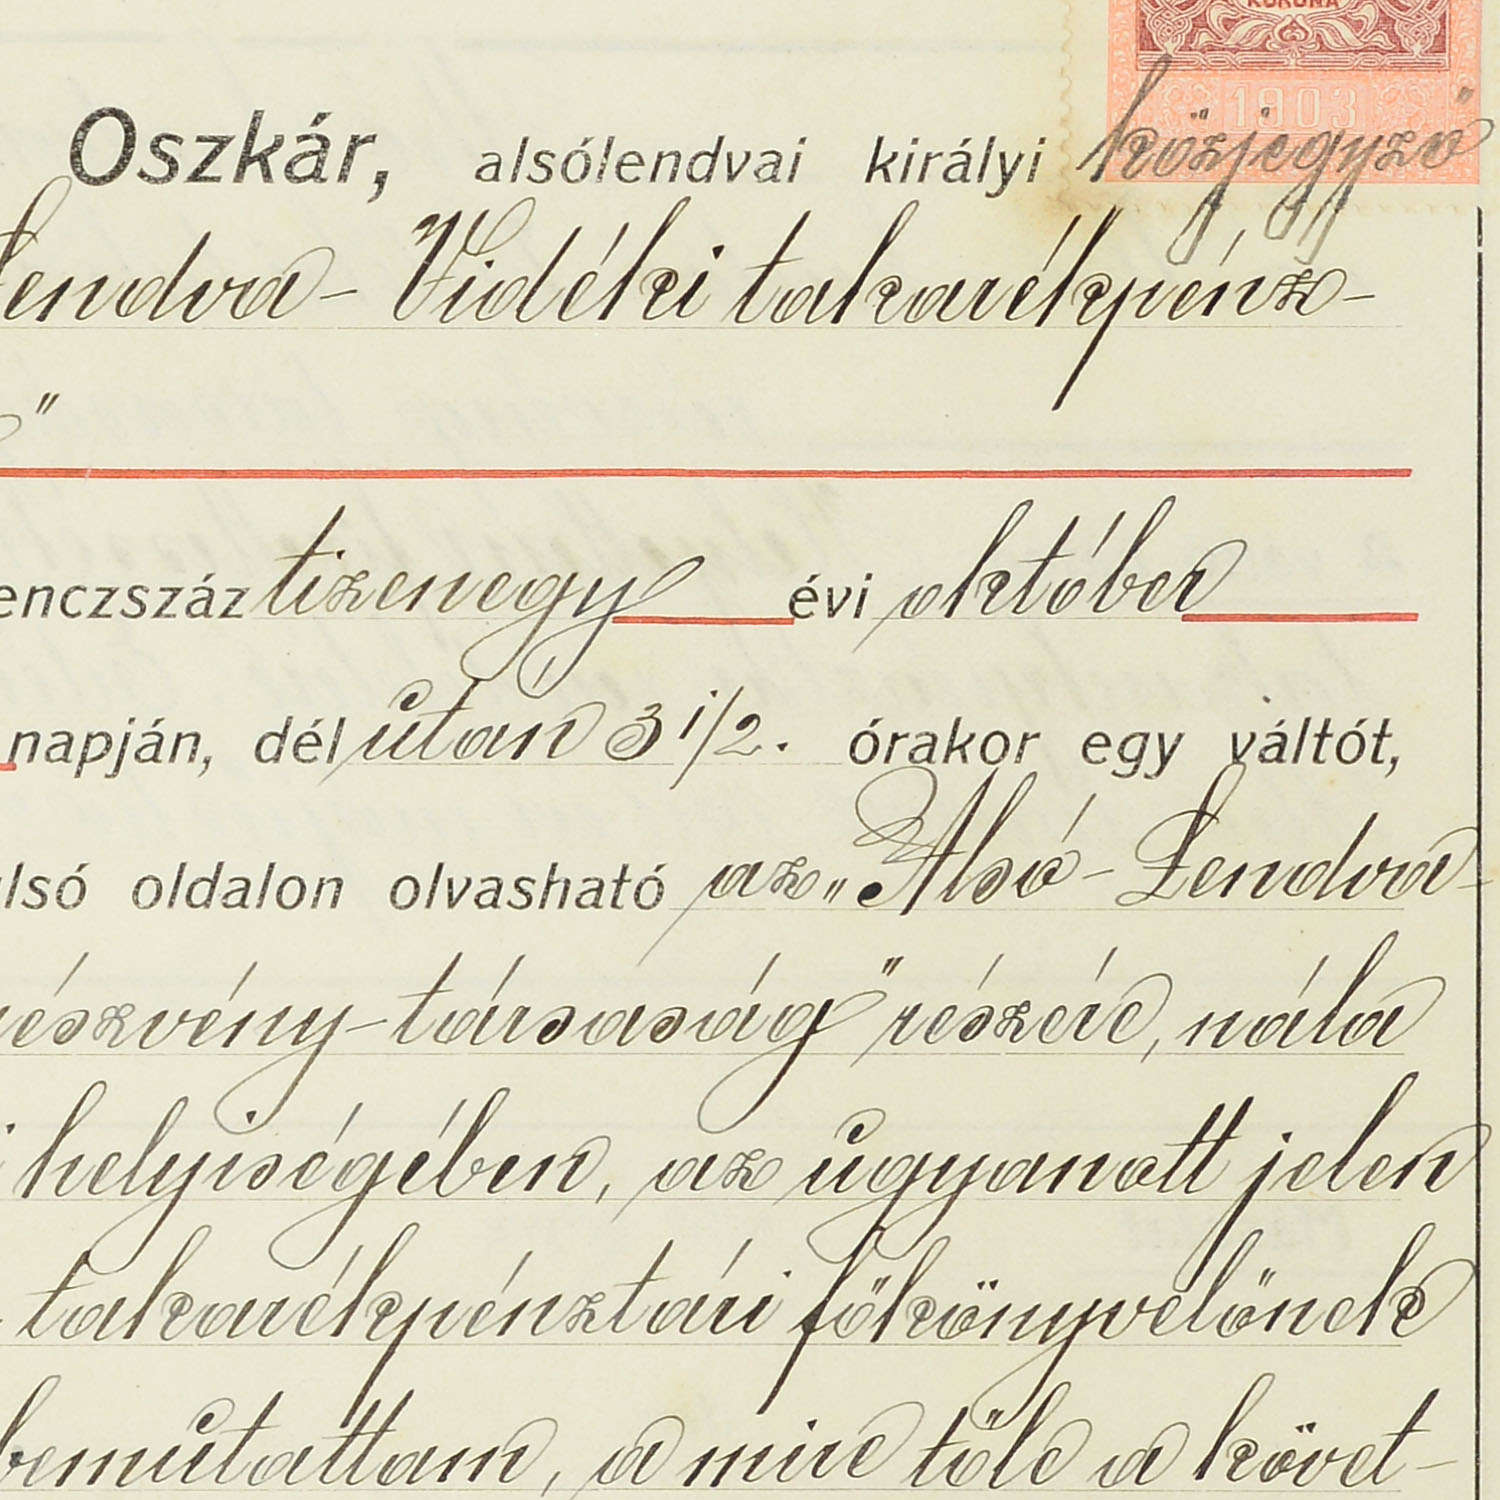 KORONA
1903
Oszkár, alsólendvai királyi közjegyző
Lendva-Vidéki takarékpénz-
"
enczszáz tizenegy évi október
napján, dél után 3 1/2. órakor egy váltót,
ulsó oldalon olvasható az „Alsó-Lendva-
részvény-társaság" részére, nála
helyiségében, az ugyanott jelen
takarékpénztári főkönyvelőnek
bemutattam, a mire tőle a követ-